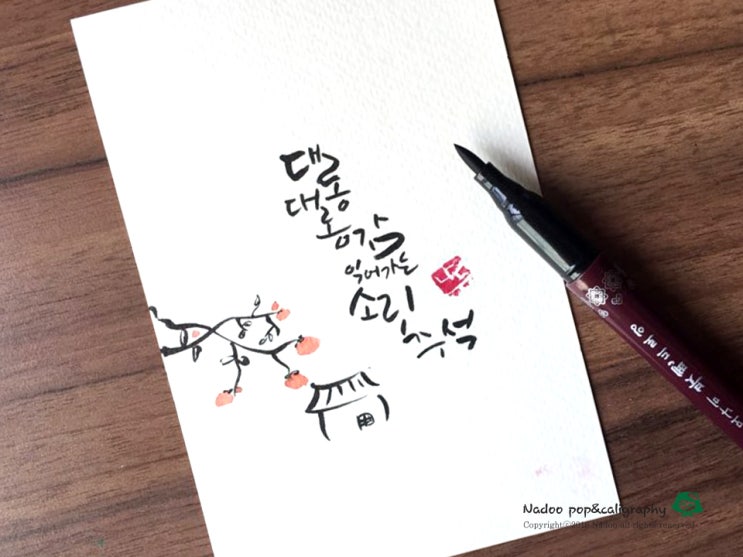 대롱
대롱
감
익어가는
소리
추석
Nadoo pop&caligraphy
Copyrightⓒ2016 Nadoo all rights reserved